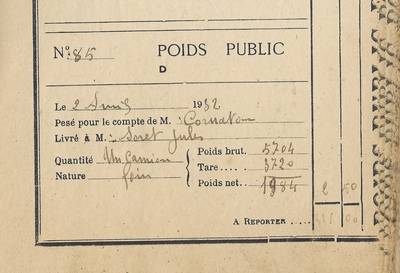 Nº 85 POIDS PUBLIC
D
Le 2 Juin 1932
Pesé pour le compte de M. Cornaton
Livré à M. Soret Jules
Quantité Un Camion
Nature foin
Poids brut. 5704
Tare.... 3720
Poids net.. 1984 2 50
A REPORTER ....
POIDS PUBLIC